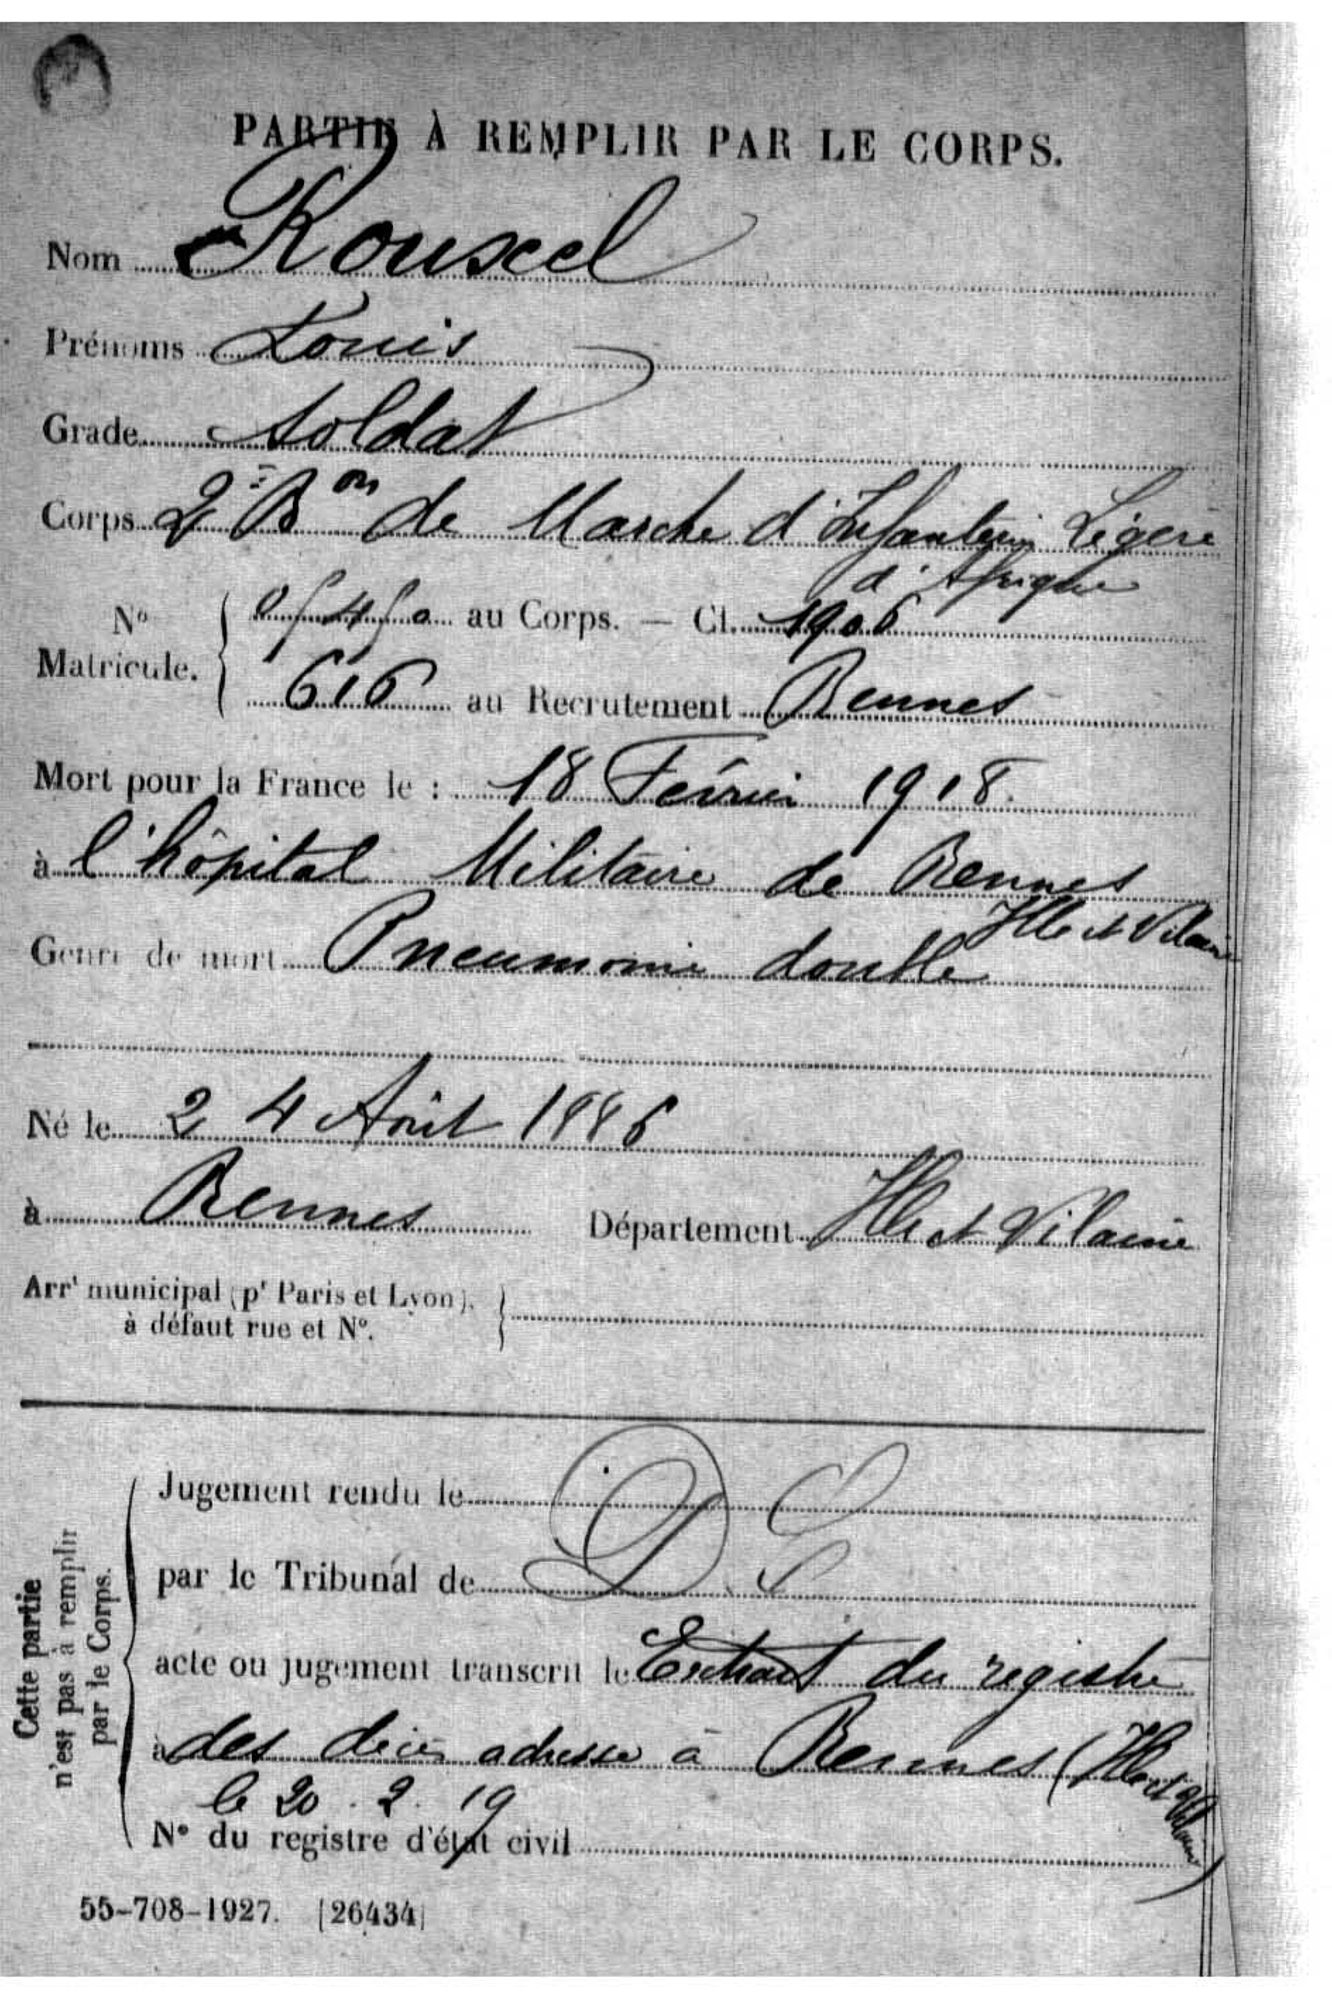 PARTIE À REMPLIR PAR LE CORPS.
Nom Rouxel
Prénoms Louis
Grade Soldat
Corps 2e Bon de Marche d'Infanterie Légère
d'Afrique
No Matricule. au Corps. — Cl. 1906
616 au Recrutement Rennes
Mort pour la France le : 18 Février 1918.
à l'hôpital Militaire de Rennes
Ille et Vilaine
Genre de mort Pneumonie double
Né le 24 Août 1886
à Rennes Département Ille et Vilaine
Arrt municipal (pr Paris et Lyon),
à défaut rue et No.
Cette partie
n'est pas à remplir
par le Corps.
Jugement rendu le
par le Tribunal de
acte ou jugement transcrit le Extrait du registre
à des décès adressé à Rennes (Ille et Vilaine)
le 20.2.19
No du registre d'état civil
55-708-1927. [26434]